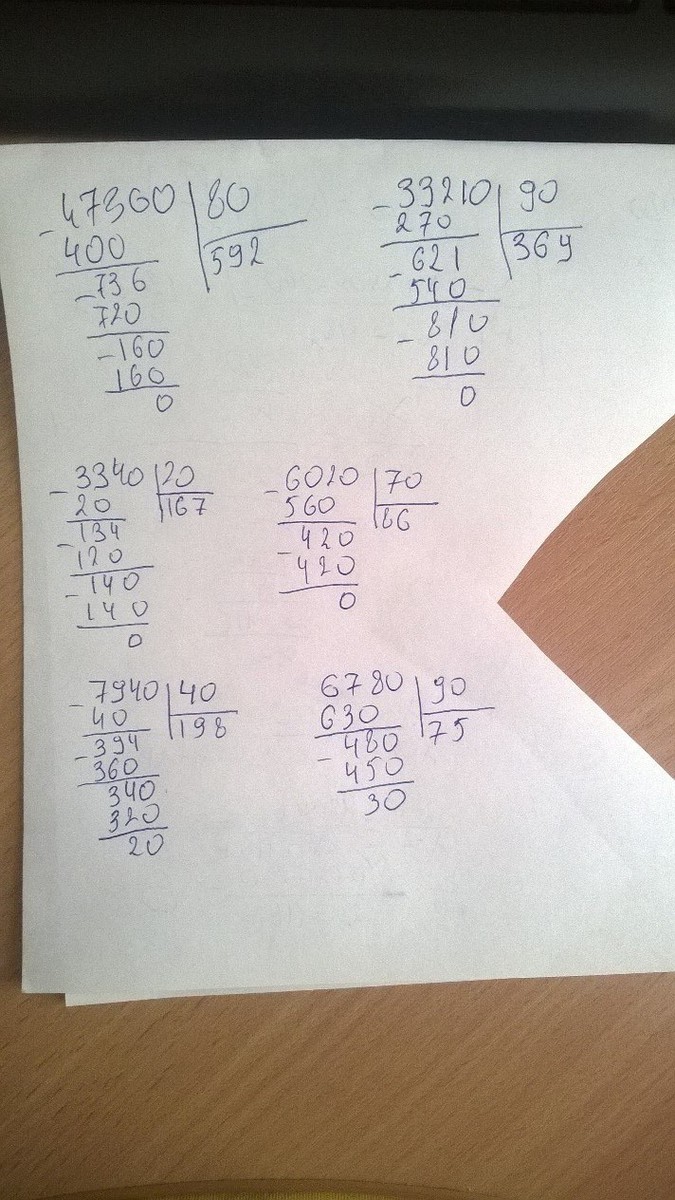 - 47360 | 80
400 | 592
- 736
720
- 160
160
0
- 33210 | 90
270 | 369
- 621
540
- 810
810
0
- 3340 | 20
20 | 167
- 134
120
- 140
140
0
- 6020 | 70
560 | 86
- 420
420
0
- 7940 | 40
40 | 198
- 394
360
340
320
20
6780 | 90
630 | 75
- 480
450
30